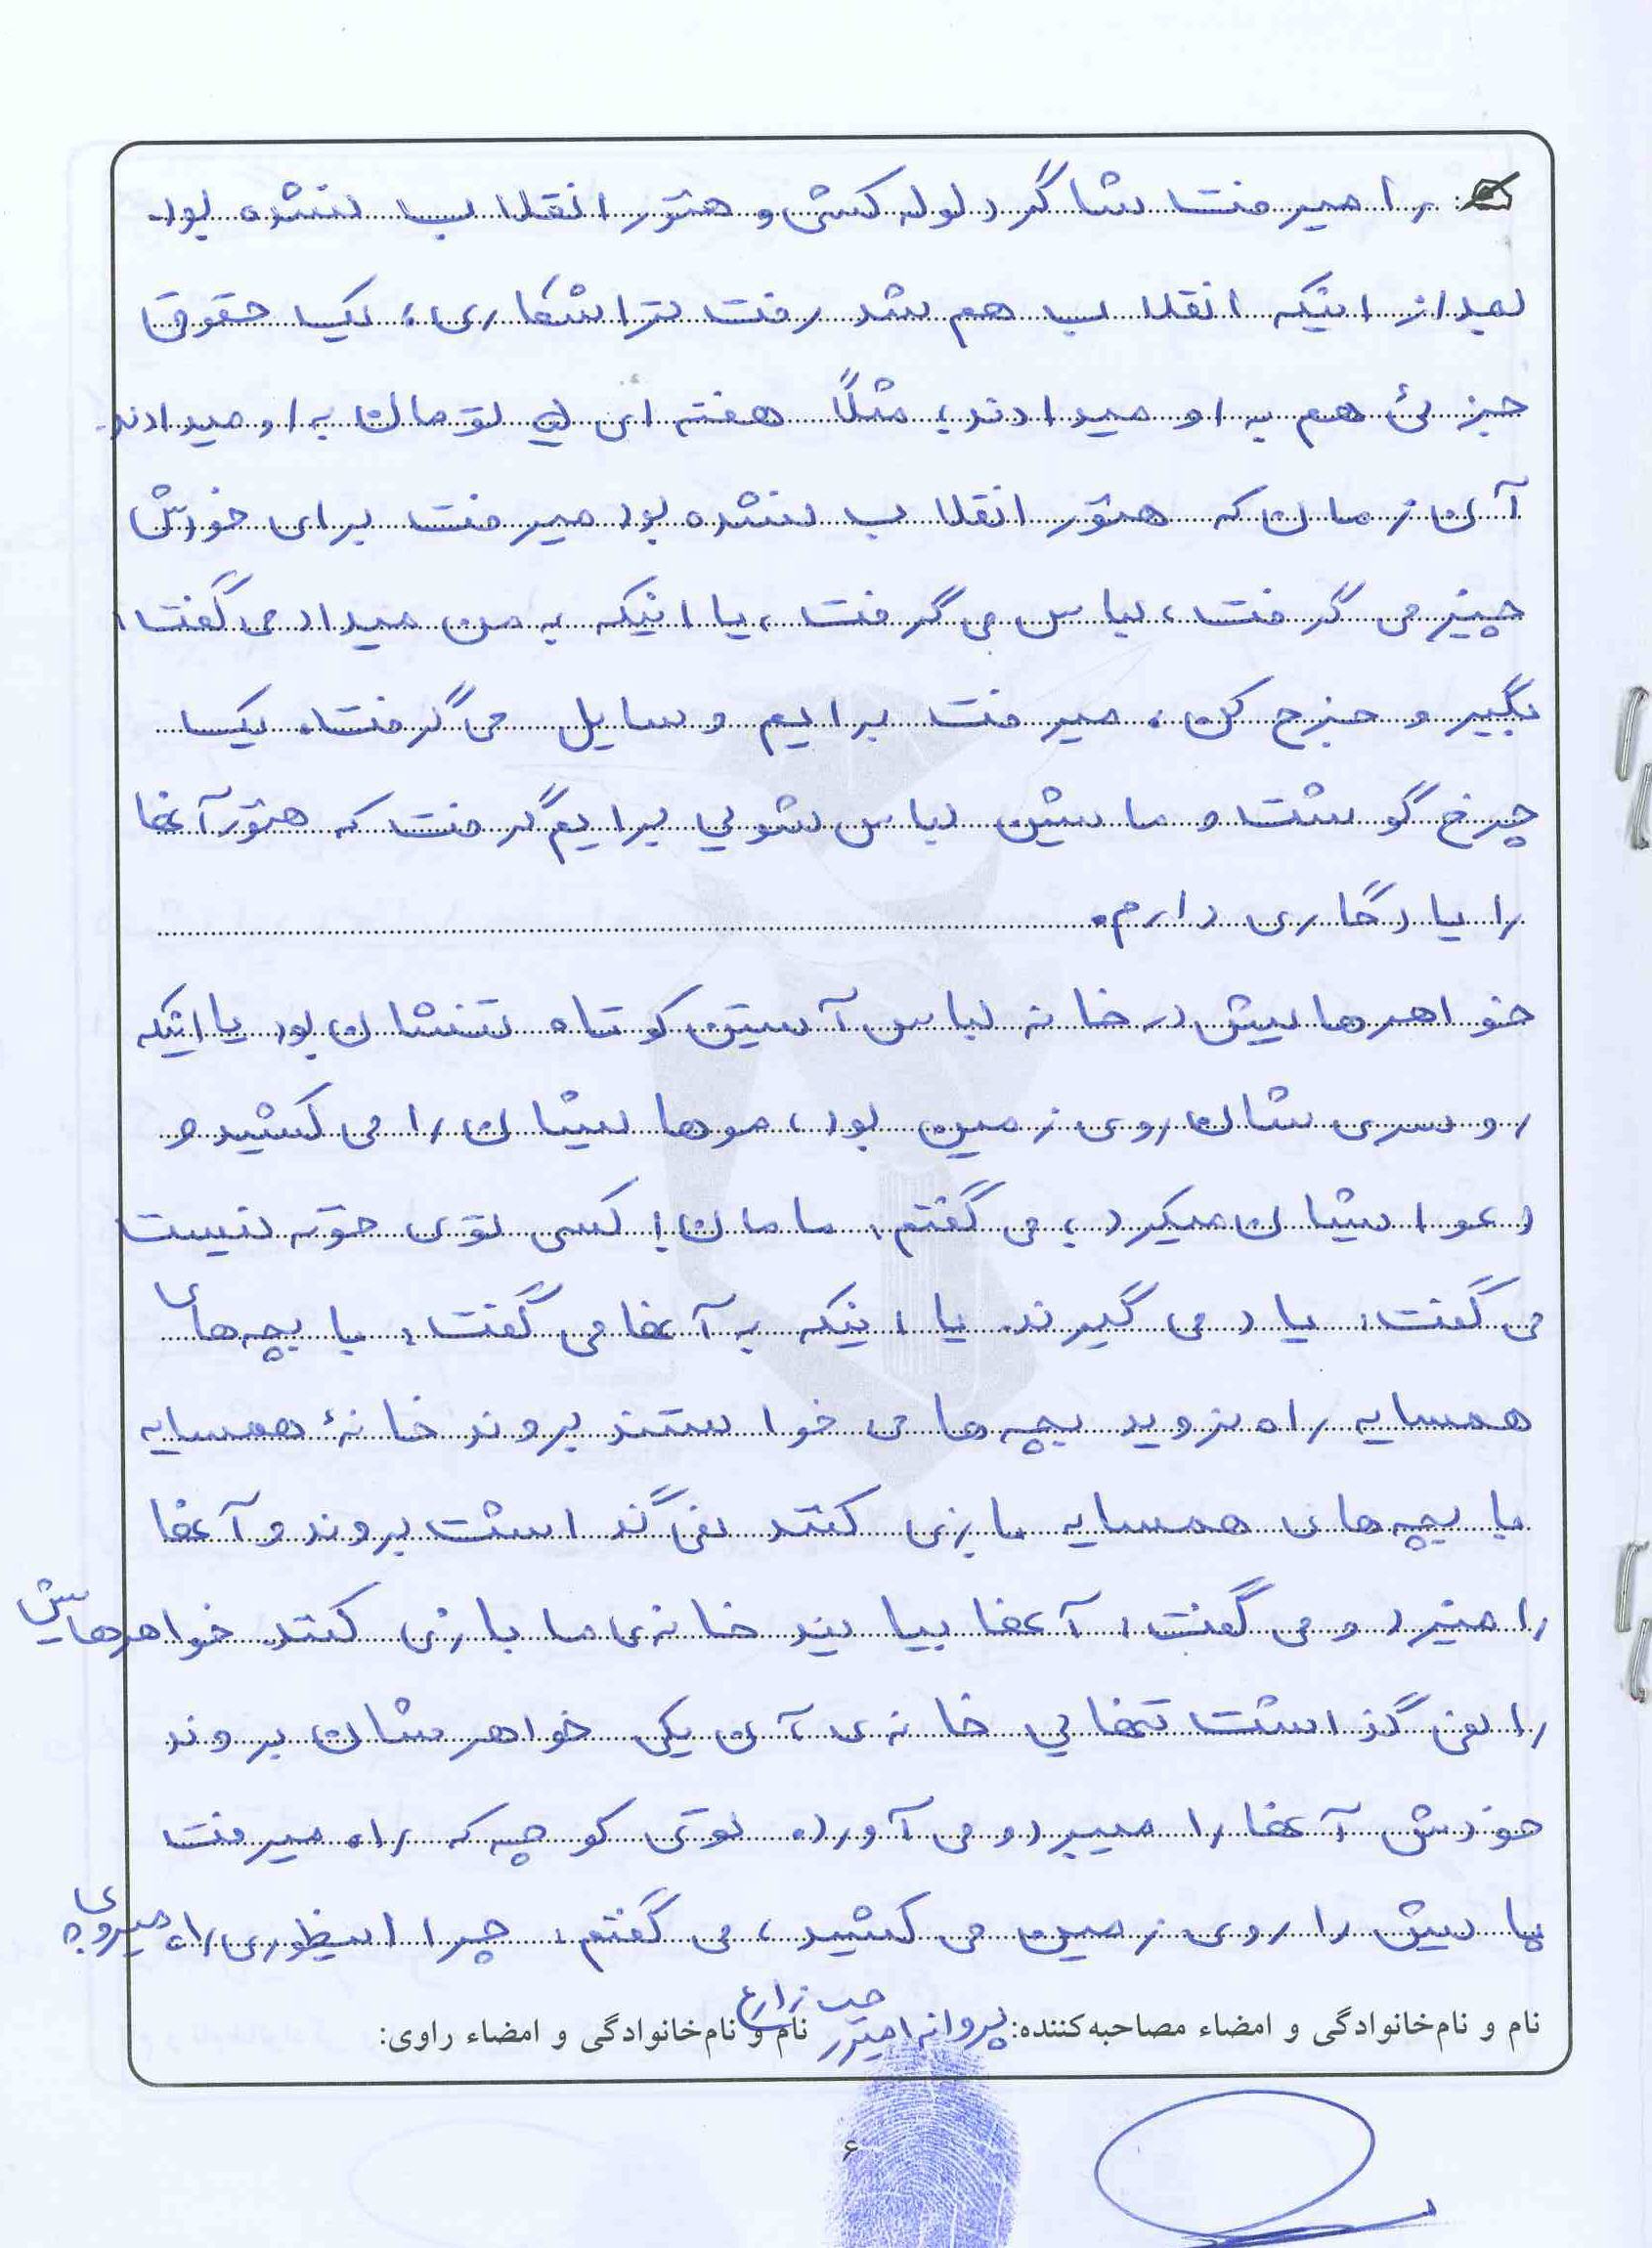 را میرفت شاگرد لوله کشی و هنوز انقلاب نشده بود.
بعد از اینکه انقلاب هم شد رفت تراشکاری، یک حقوق
جزئی هم به او میدادند؛ مثلاً هفته ای تومان به او میدادند.
آن زمان که هنوز انقلاب نشده بود میرفت برای خودش
چیز می گرفت، لباس می گرفت، یا اینکه به من میداد می گفت:
بگیر و خرج کن، میرفت برایم وسایل می گرفت. یک
چرخ گوشت و ماشین لباس شویی برایم گرفت که هنوز آنها
را یادگاری دارم.
خواهرهایش در خانه لباس آستین کوتاه تنشان بود یا اینکه
روسری شان روی زمین بود، موهایشان را می کشید و
دعوایشان میکرد؛ می گفتم: مامان! کسی توی خونه نیست
می گفت: یاد می گیرند. یا اینکه به آنها می گفت: با بچه های
همسایه راه نروید بچه ها می خواستند بروند خانۀ همسایه
با بچه های همسایه بازی کنند نمی گذاشت بروند و آنها
را میزد و می گفت: آنها بیایند خانه ی ما بازی کنند. خواهرهایش
را نمی گذاشت تنهایی خانه ی آن یکی خواهرشان بروند
خودش آنها را میبرد و می آورد. توی کوچه که راه میرفت
پایش را روی زمین می کشید، می گفتم: چرا اینطوری راه میروی؟
نام و نام‌خانوادگی و امضاء مصاحبه‌کننده: پروانه نام و نام‌خانوادگی و امضاء راوی:
۶